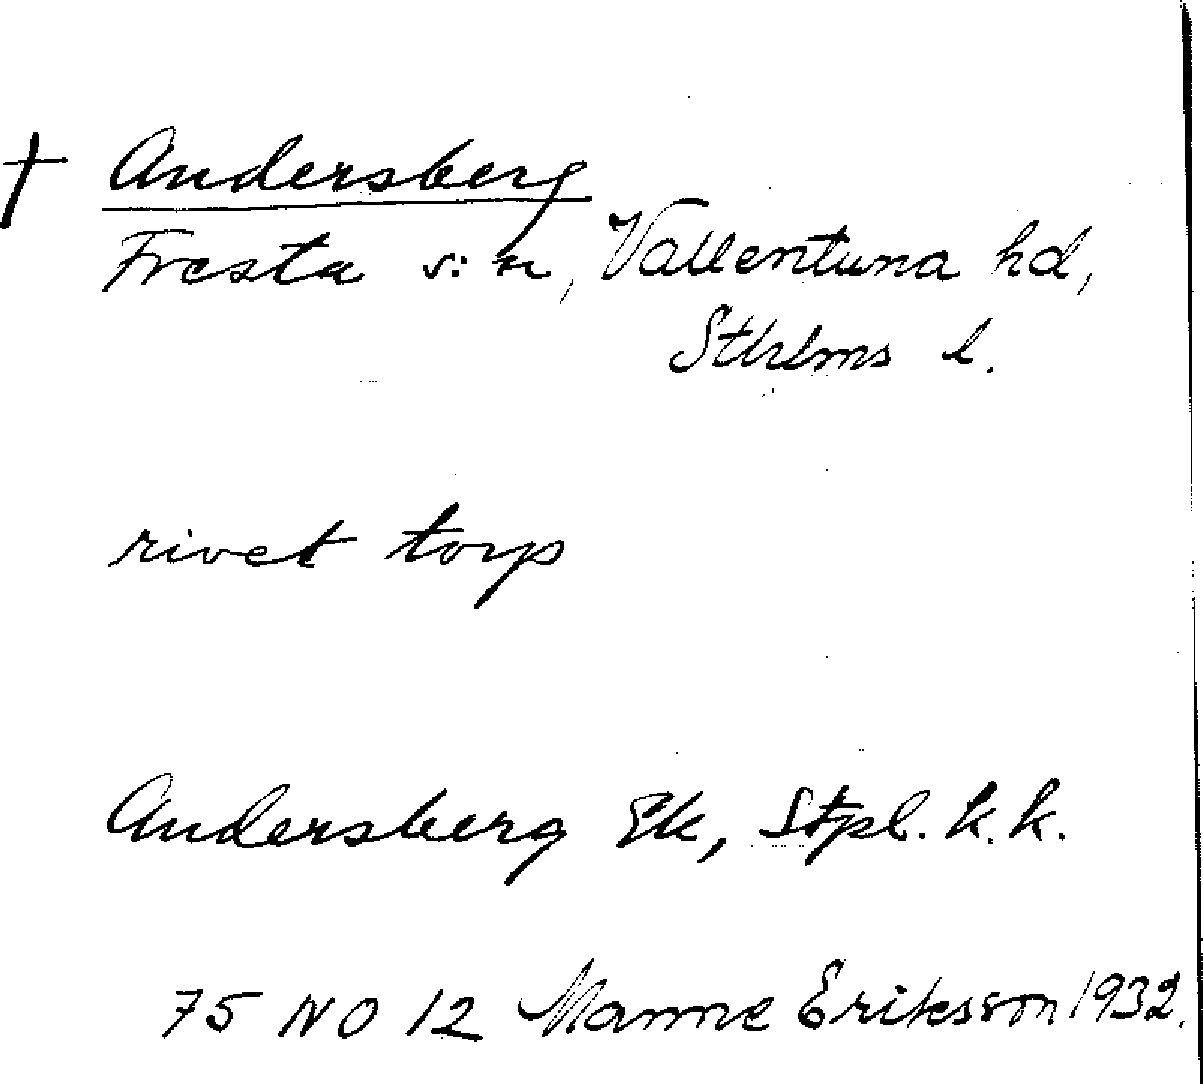 † Andersberg
Fresta s:n, Vallentuna hd,
Sthlms l.
rivet torp
Andersberg Ek, Stpl. k.k.
75 NO 12 Manne Eriksson 1932.